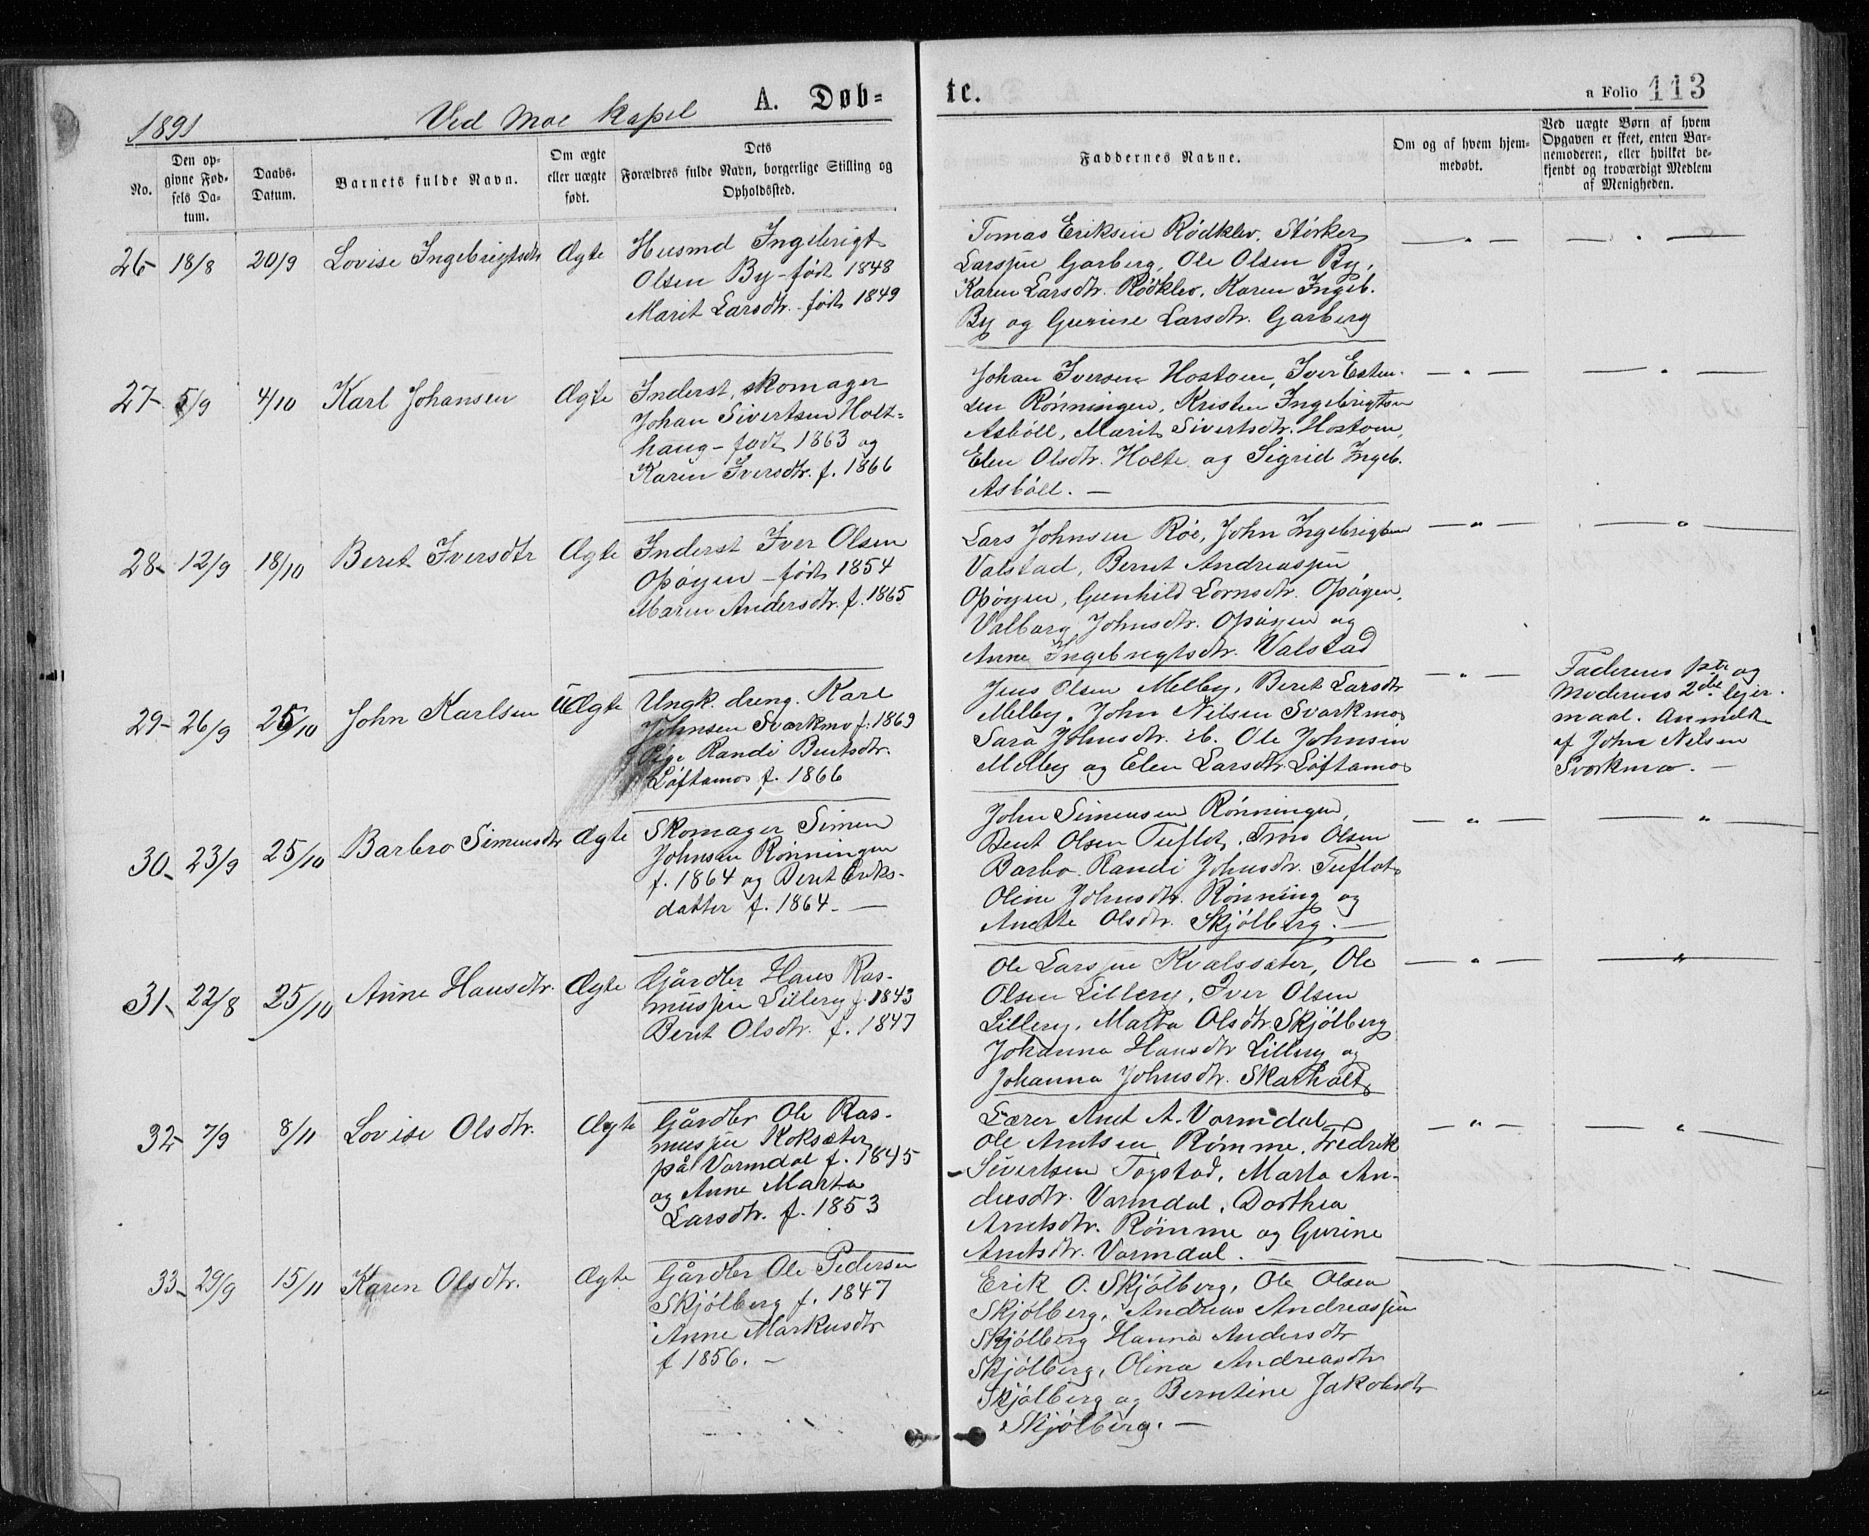 1891 Ved Moe kapel A. Døb-
te. a Folio 113
No.
Den op-
givne Fød-
sels Da-
tum.
Daabs-
Datum.
Barnets fulde Navn.
Om ægte
eller uægte
født.
Dets
Forældres fulde Navn, borgerlige Stilling og
Opholdssted.
Faddernes Navne.
Om og af hvem hjem-
medøbt.
Ved uægte Børn af hvem
Opgaven er skeet, enten Bar-
nemoderen, eller hvilket be-
kjendt og troværdigt Medlem
af Menigheden.
26- 18/8 20/9 Lovise Ingebrigtsdtr Ægte
Husmd Ingebrigt
Olsen By - født 1848
Marit Larsdtr. født 1849
Tomas Eriksen Rødklev, Størker
Larssen Garberg, Ole Olsen By,
Karen Larsdtr. Rødklev, Karen Ingeb.
By og Gurine Larsdtr. Garberg
— " — — " —
27- 5/9 4/10 Karl Johansen Ægte
Inderst, skomager
Johan Sivertsen Holt-
haug - født 1863 og
Karen Iversdtr. f. 1866
Johan Iversen Hostoen, Iver Esten-
sen Rønningen, Kristen Ingebrigtsen
Asbøll, Marit Sivertsdtr. Hostoen,
Elen Olsdtr. Holte og Sigrid Ingeb.
Asbøll. —
— " — — " —
28- 12/9 18/10 Beret Iversdtr Ægte
Inderst Iver Olsen
Opøyen - født 1854
Maren Andersdtr. f. 1865
Lars Johnsen Røe, John Ingebrigtsen
Valstad, Bernt Andreassen
Opøyen, Gunhild Lornsdtr. Opøyen,
Valborg Johnsdtr. Opøyen og
Anne Ingebrigtsdtr. Valstad
— " — — " —
29- 26/9 25/10 John Karlsen UÆgte
Ungk. dreng. Karl
Johnsen Svarkmo f. 1869
Pige Randi Bentsdtr.
Løftamo f. 1866
Jens Olsen Melby, Beret Larsdtr
Melby, John Nilsen Svarkmo
Sara Johnsdtr. ib. Ole Johnsen
Melby og Elen Larsdtr. Løftamo
— " —
Faderens 1ste og
Moderens 2det lejer-
maal. Anmeldt
af John Nilsen
Svorkmo. —
30- 23/9 25/10 Barbro Simensdtr Ægte
Skomager Simen
Johnsen Rønningen
f. 1864 og Berit Eriks-
datter f. 1864. —
John Simensen Rønningen,
Bent Olsen Tuflot, Tron Olsen
Barbo. Randi Johnsdtr. Tuflot,
Oline Johnsdtr. Rønning og
Anette Olsdtr. Skjølberg. —
— " — — " —
31- 22/8 25/10 Anne Hansdtr. Ægte
Gårdbr Hans Ras-
mussen Lillery f. 1843
Berit Olsdtr. f. 1847
Ole Larssen Kvalssæter, Ole
Olsen Lillery, Iver Olsen
Lillery, Marta Olsdtr. Skjølberg
Johanna Hansdtr Lillery og
Johanna Johnsdtr. Skarholt
— " — — " —
32- 7/9 8/11 Lovise Olsdtr. Ægte
Gårdbr Ole Ras-
mussen Koksæter
på Vormdal f. 1845
og Anne Marta
Larsdtr. f. 1853
Lærer Arnt A. Vormdal
Ole Arntsen Rømme, Fredrik
Sivertsen Togstad, Marta An-
dersdtr. Vormdal, Dorthea
Arntsdtr. Rømme og Gurine
Arntsdtr. Vormdal. —
— " — — " —
33- 29/9 15/11 Karen Olsdtr. Ægte
Gårdbr Ole Pedersen
Skjølberg f. 1847
Anne Markusdtr
f 1856. —
Erik O. Skjølberg, Ole Olsen
Skjølberg, Andreas Andreassen
Skjølberg Hanna Andersdtr
Skjølberg, Olina Andreasdtr
Skjølberg og Berntine Jakobsdtr
Skjølberg. —